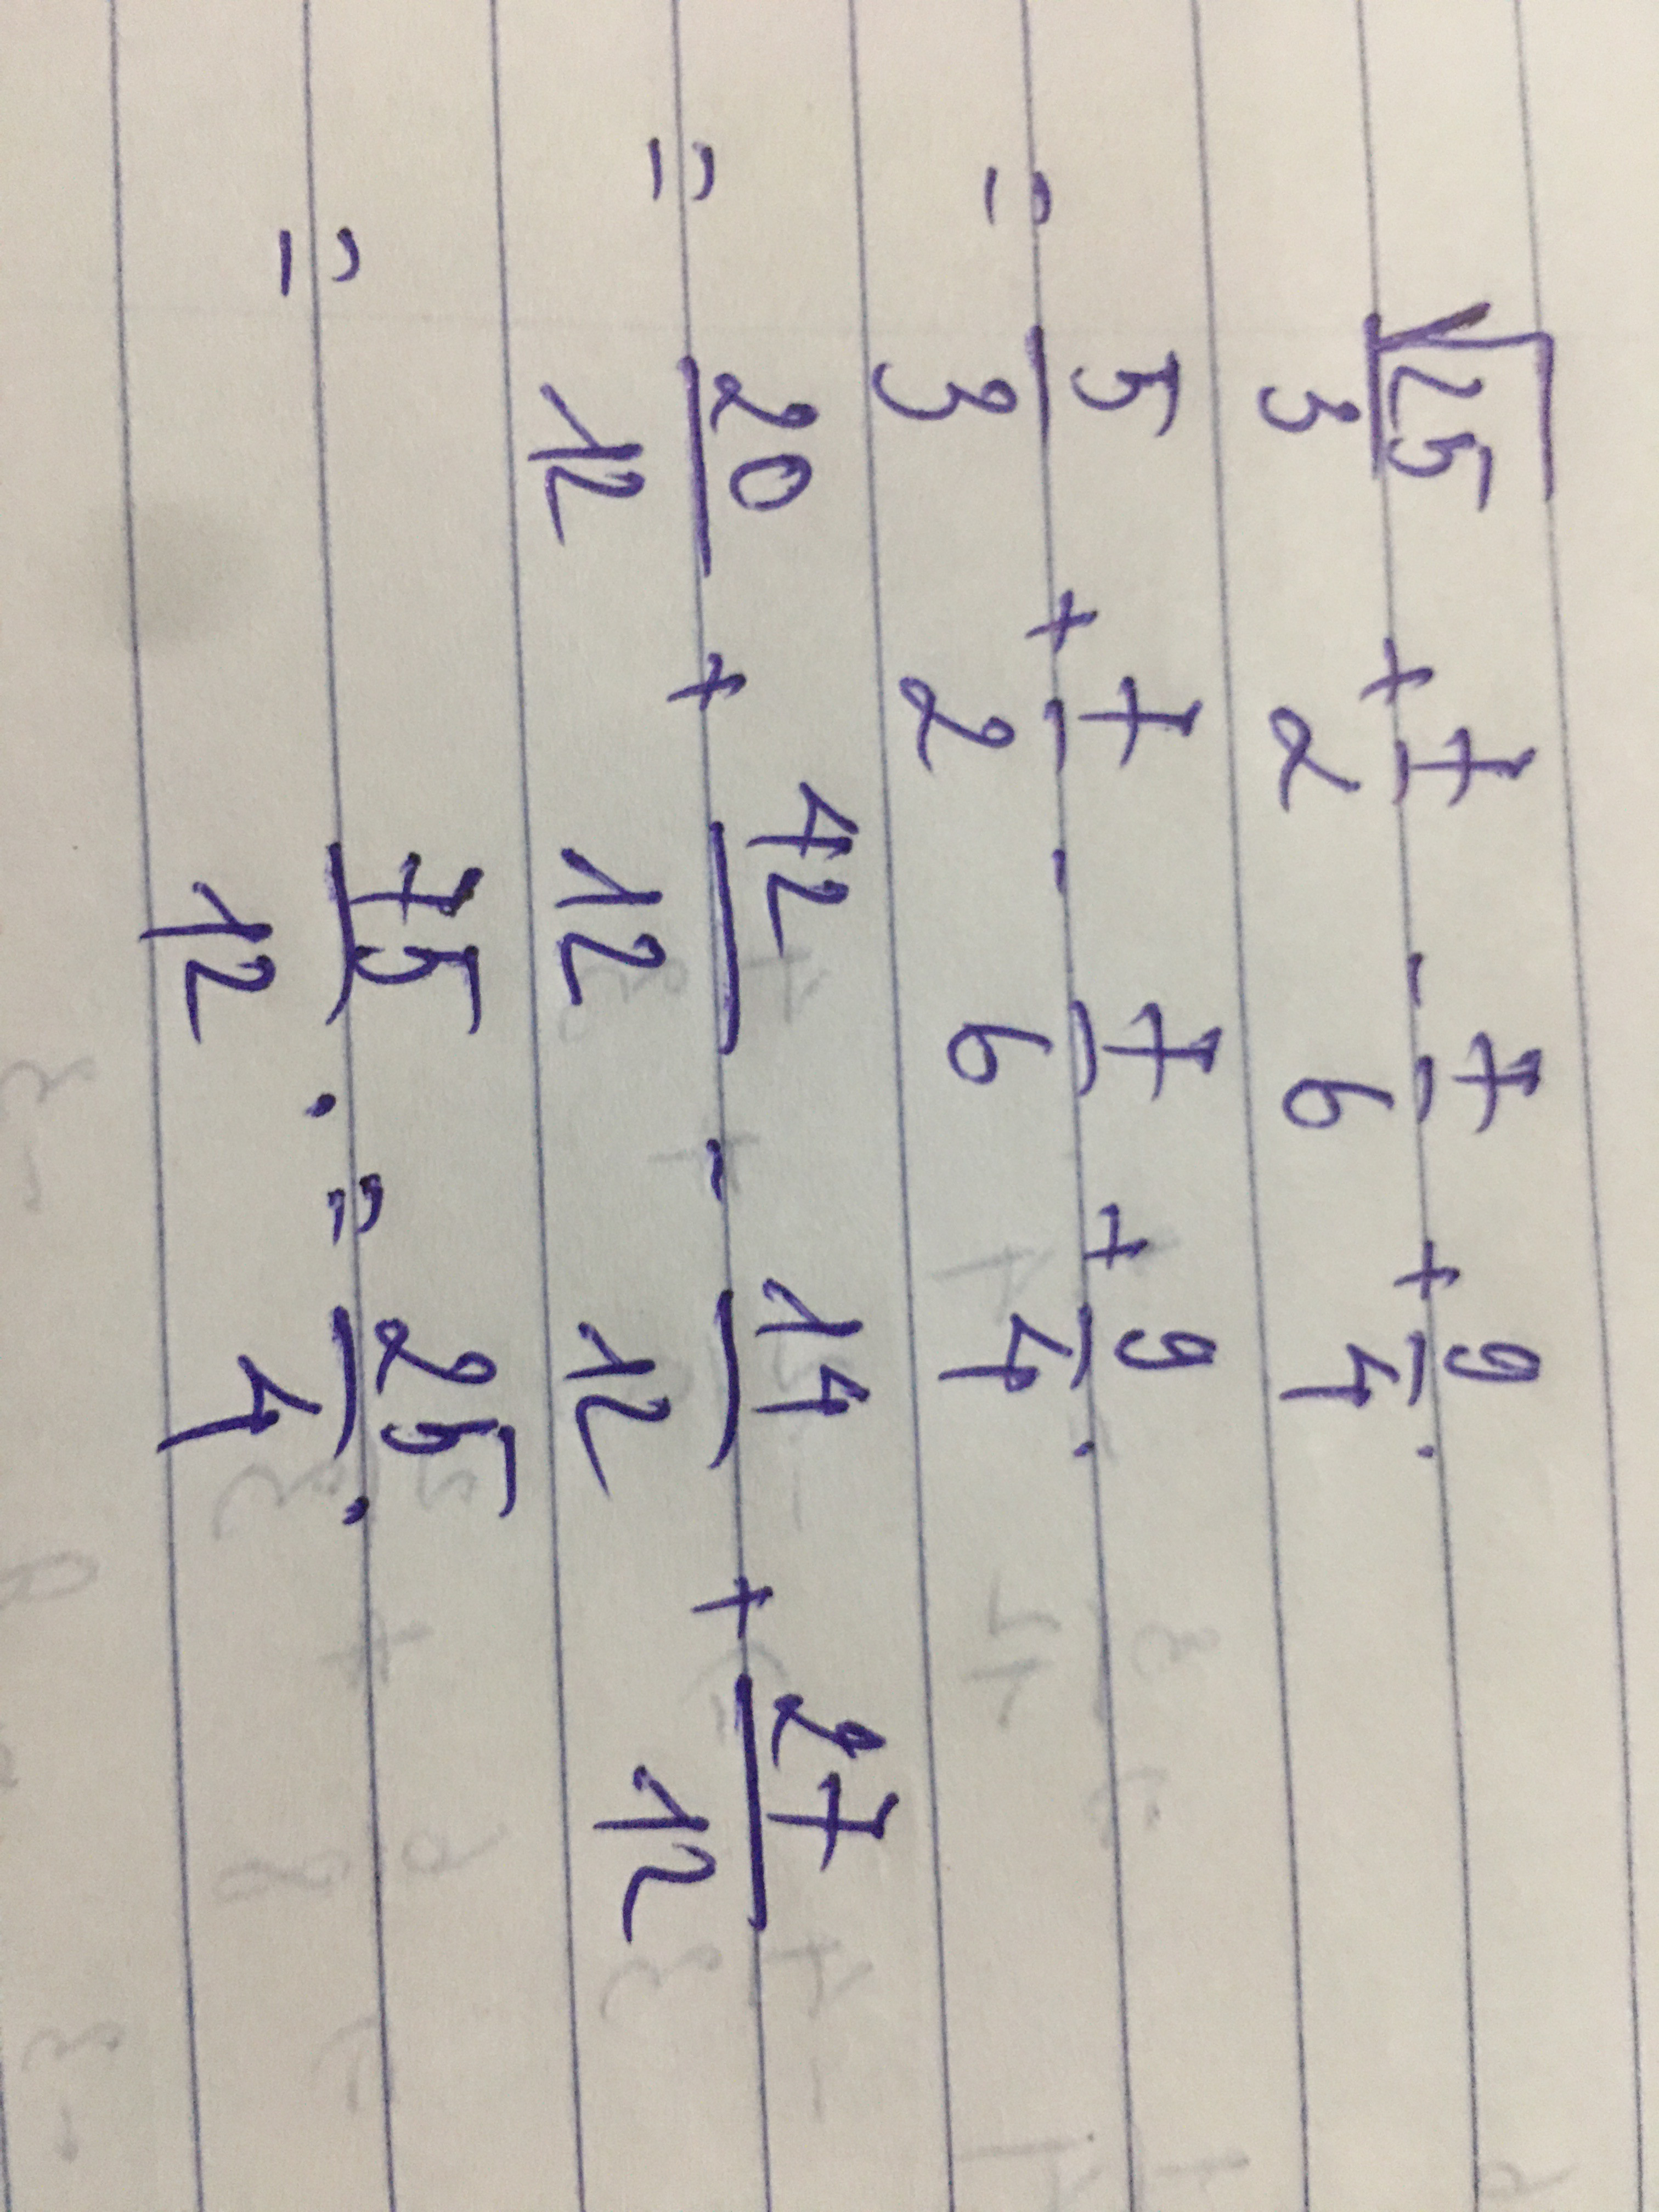 √25/3 + 7/2 - 7/6 + 9/4.
= 5/3 + 7/2 - 7/6 + 9/4.
= 20/12 + 42/12 - 14/12 + 27/12
= 75/12. = 25/4.